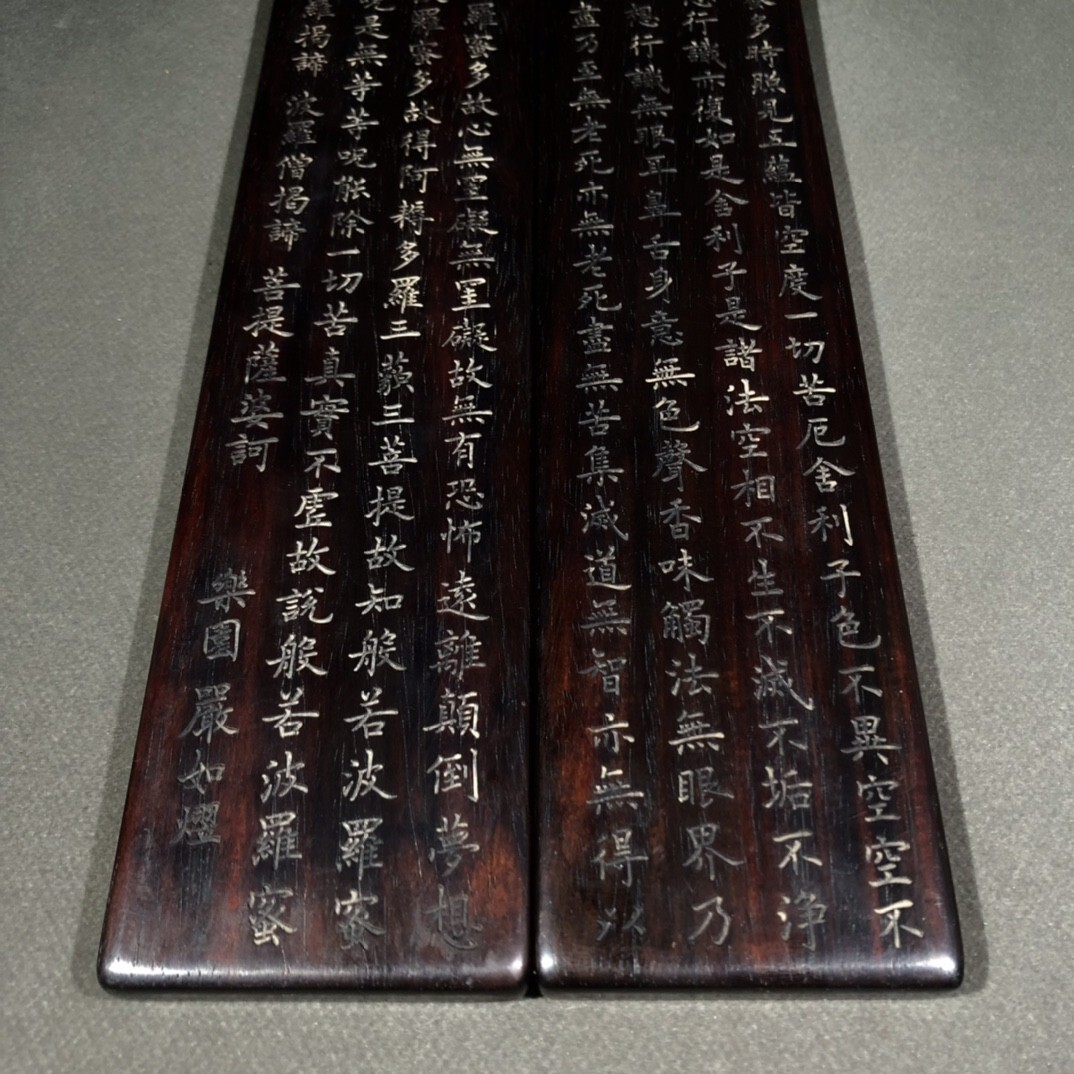 多時照見五蘊皆空度一切苦厄舍利子色不異空空不
行識亦復如是舍利子是諸法空相不生不滅不垢不淨
想行識無眼耳鼻舌身意無色聲香味觸法無眼界乃
盡乃至無老死亦無老死盡無苦集滅道無智亦無得以
羅蜜多故心無罣礙無罣礙故無有恐怖遠離顛倒夢想
羅蜜多故得阿耨多羅三藐三菩提故知般若波羅蜜
呪是無等等呪能除一切苦真實不虛故說般若波羅蜜
羅揭諦 波羅僧揭諦 菩提薩婆訶
樂園嚴如熤